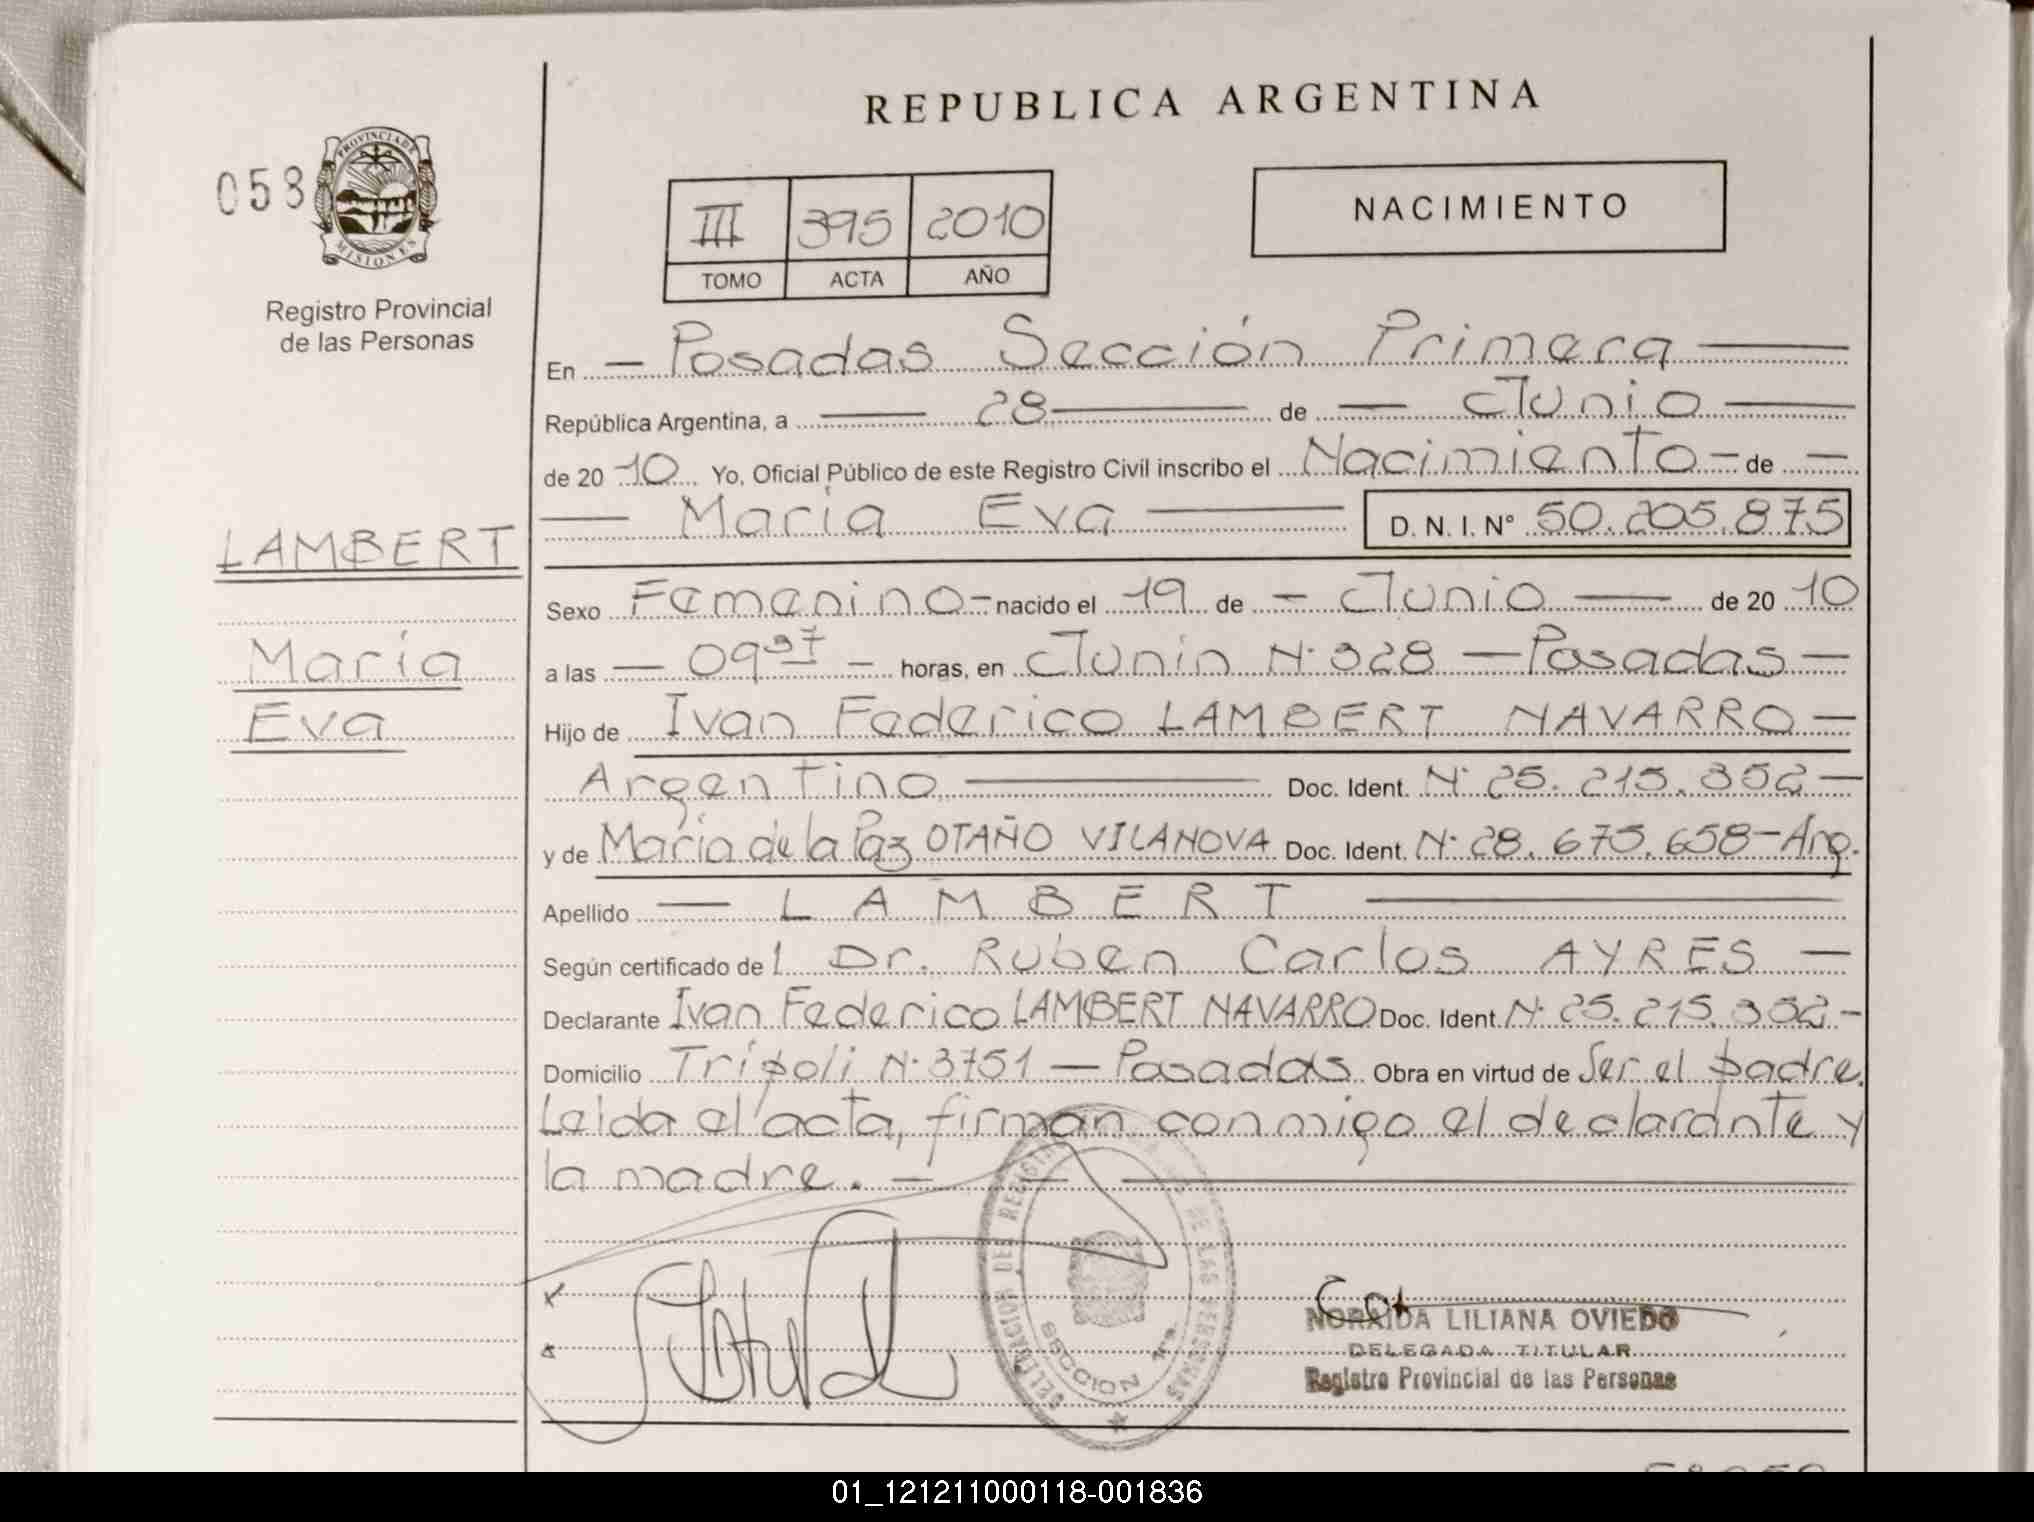 REPUBLICA ARGENTINA
058
PROVINCIA DE
MISIONES
Registro Provincial
de las Personas
III 395 2010
TOMO ACTA AÑO
NACIMIENTO
En Posadas Sección Primera
República Argentina, a 28 de Junio
de 2010 Yo, Oficial Público de este Registro Civil inscribo el Nacimiento de
María Eva D. N. I. N° 50.205.875
LAMBERT
María
Eva
Sexo Femenino nacido el 19 de Junio de 2010
a las 09 37 horas, en Junín N° 328 - Posadas
Hijo de Ivan Federico LAMBERT NAVARRO
Argentino Doc. Ident. N° 25.215.352
y de María de la Paz OTAÑO VILANOVA Doc. Ident. N° 28.675.658-Arg.
Apellido LAMBERT
Según certificado del Dr. Ruben Carlos AYRES
Declarante Ivan Federico LAMBERT NAVARRO Doc. Ident. N° 25.215.352-
Domicilio Trípoli N° 3751 - Posadas Obra en virtud de Ser el padre.
Leida el acta, firman conmigo el declarante y
la madre.
SECCION 1ra.
NORAIDA LILIANA OVIEDO
DELEGADA TITULAR
Registro Provincial de las Personas
01_121211000118-001836